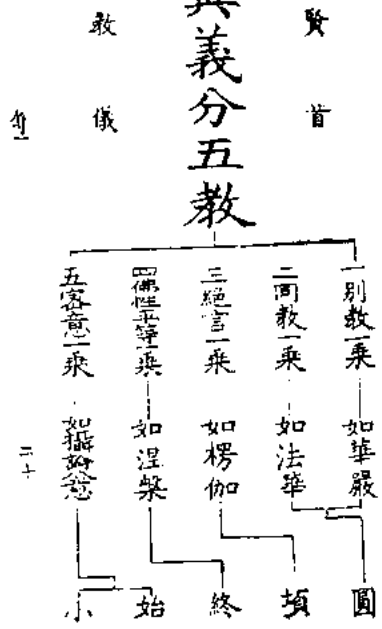 賢首
義分五教
教儀
一別教一乗 如華嚴
二同教一乗 如法華
三絕言一乗 如楞伽
四佛性平等一乗 如涅槃
五密意一乗
圓
頓
終
始
小
二十